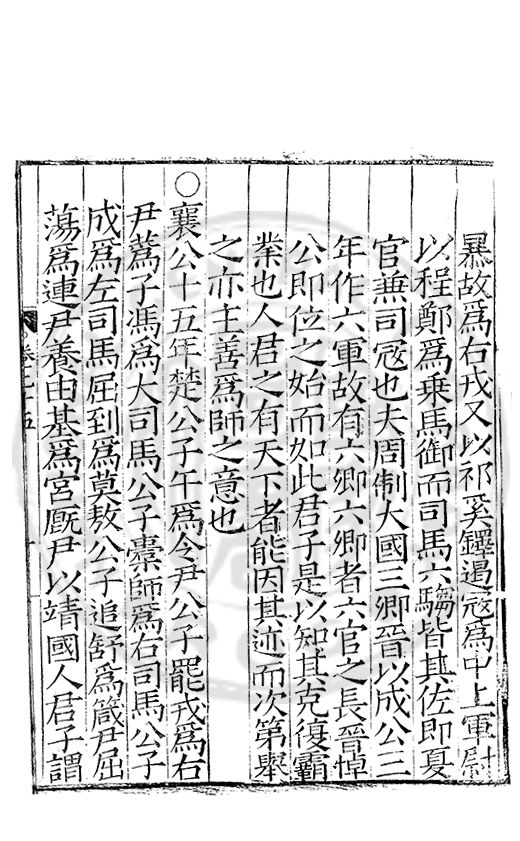 暴故爲右戎又以祁奚鐸遏寇爲中上軍尉
以程鄭爲乗馬御而司馬六騶皆其佐即夏
官兼司寇也夫周制大國三卿晉以成公三
年作六軍故有六卿六卿者六官之長晉悼
公即位之始而如此君子是以知其克復霸
業也人君之有天下者能因其迹而次第舉
之亦主善爲師之意也
○襄公十五年楚公子午爲令尹公子罷戎爲右
尹蒍子馮爲大司馬公子橐師爲右司馬公子
成爲左司馬屈到爲莫敖公子追舒爲箴尹屈
蕩爲連尹養由基爲宮廐尹以靖國人君子謂